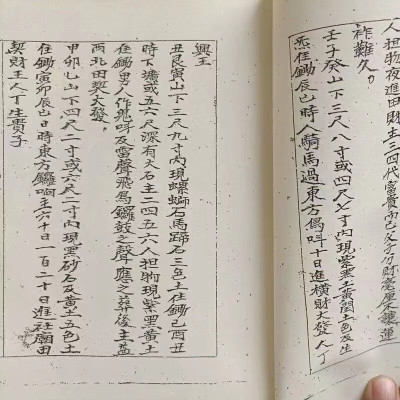 人担物夜進田財主三四代富貴而已
祚難久。
壬子癸山下三尺八寸或四尺七寸內現紫黑土黄閏土色及生
炁住鋤辰巳時人騎馬過東方 十日進橫財大發人丁
興王
丑艮寅山下三尺九寸內現螺螄石馬蹄石三色土住鋤己酉丑
時下壙或五六尺深有大石主二四五六人担物現紫黑黄土
住鋤男人作鬼呼及雷聲飛鳥鑼鼓之聲應之葬後主益
西北田契大發。
甲卯乙山下四尺二寸或六尺二寸內現黑砂石及黄土五色土
住鋤寅卯辰巳日時東方鑼 主六十日一百二十日進社廟田
契財王人丁生貴子